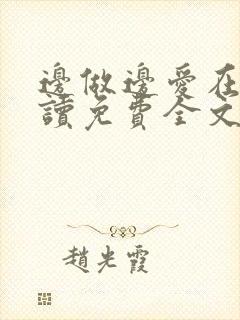 邊做邊愛在
讀免費全文
趙光霞